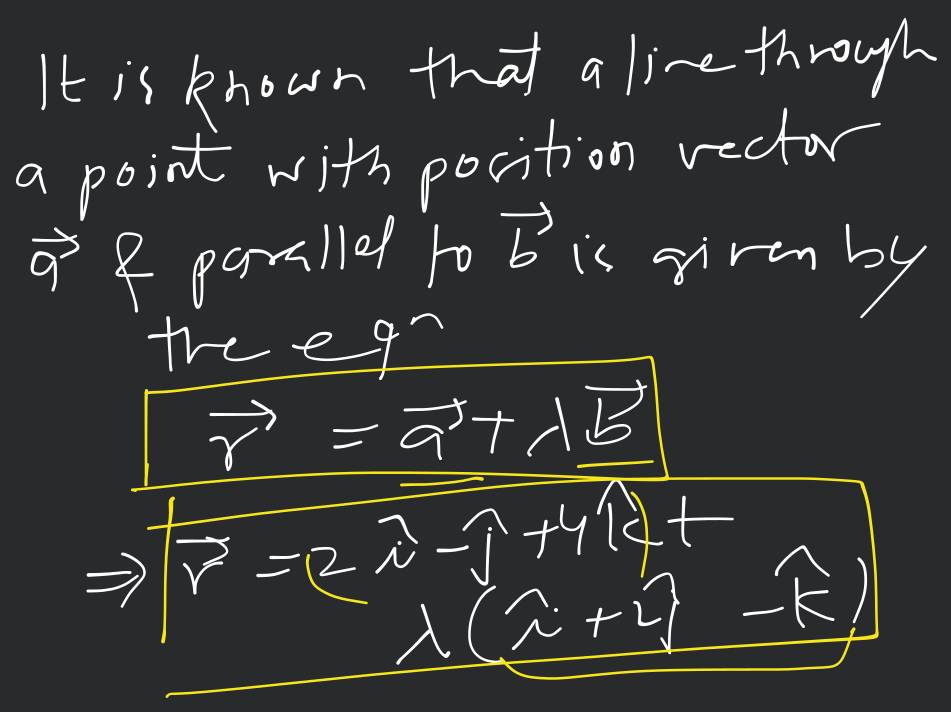 It is known that a line through
a point with position vector
a⃗ & parallel to b⃗ is given by
the eqⁿ
r⃗ = a⃗ + λb⃗
⇒ r⃗ = 2î - ĵ + 4k̂ +
λ(î + 2ĵ - k̂)